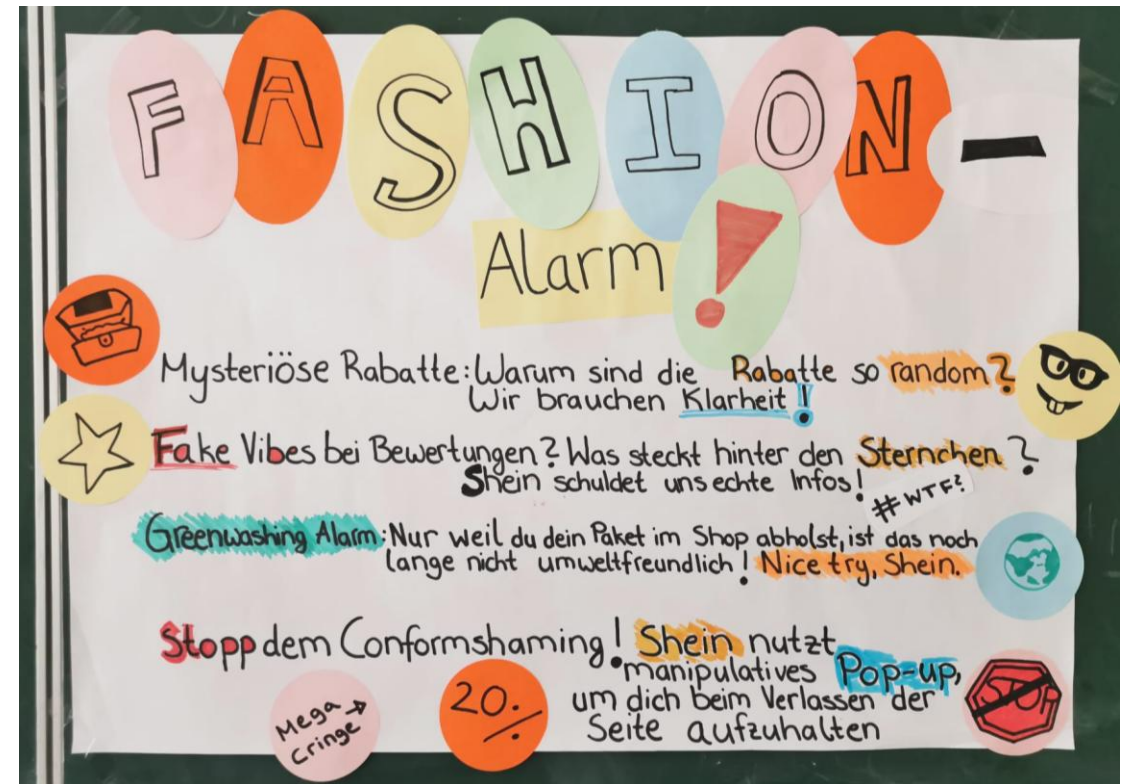 FASHION-
Alarm!
Mysteriöse Rabatte: Warum sind die Rabatte so random?
Wir brauchen Klarheit!
Fake Vibes bei Bewertungen? Was steckt hinter den Sternchen?
Shein schuldet uns echte Infos!
#WTF?
Greenwashing Alarm: Nur weil du dein Paket im Shop abholst, ist das noch
lange nicht umweltfreundlich! Nice try, Shein.
Stopp dem Conformshaming! Shein nutzt
manipulatives Pop-up,
um dich beim Verlassen der
Seite aufzuhalten
STOP
Mega →
Cringe
20./.